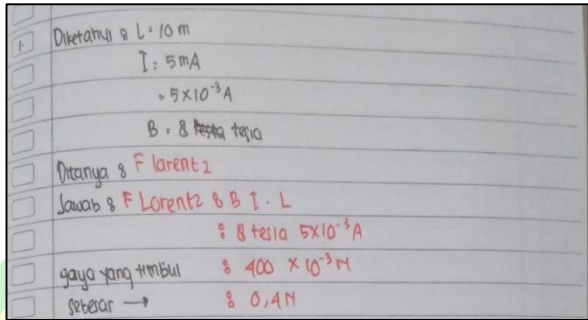 1. Diketahui : L = 10 m
I : 5 mA
= 5 × 10⁻³ A
B = 8 tesla
Ditanya : F larentz
Jawab : F Lorentz : B I . L
: 8 tesla 5×10⁻³ A
gaya yang timbul : 400 × 10⁻³ N
sebesar → : 0,4 N